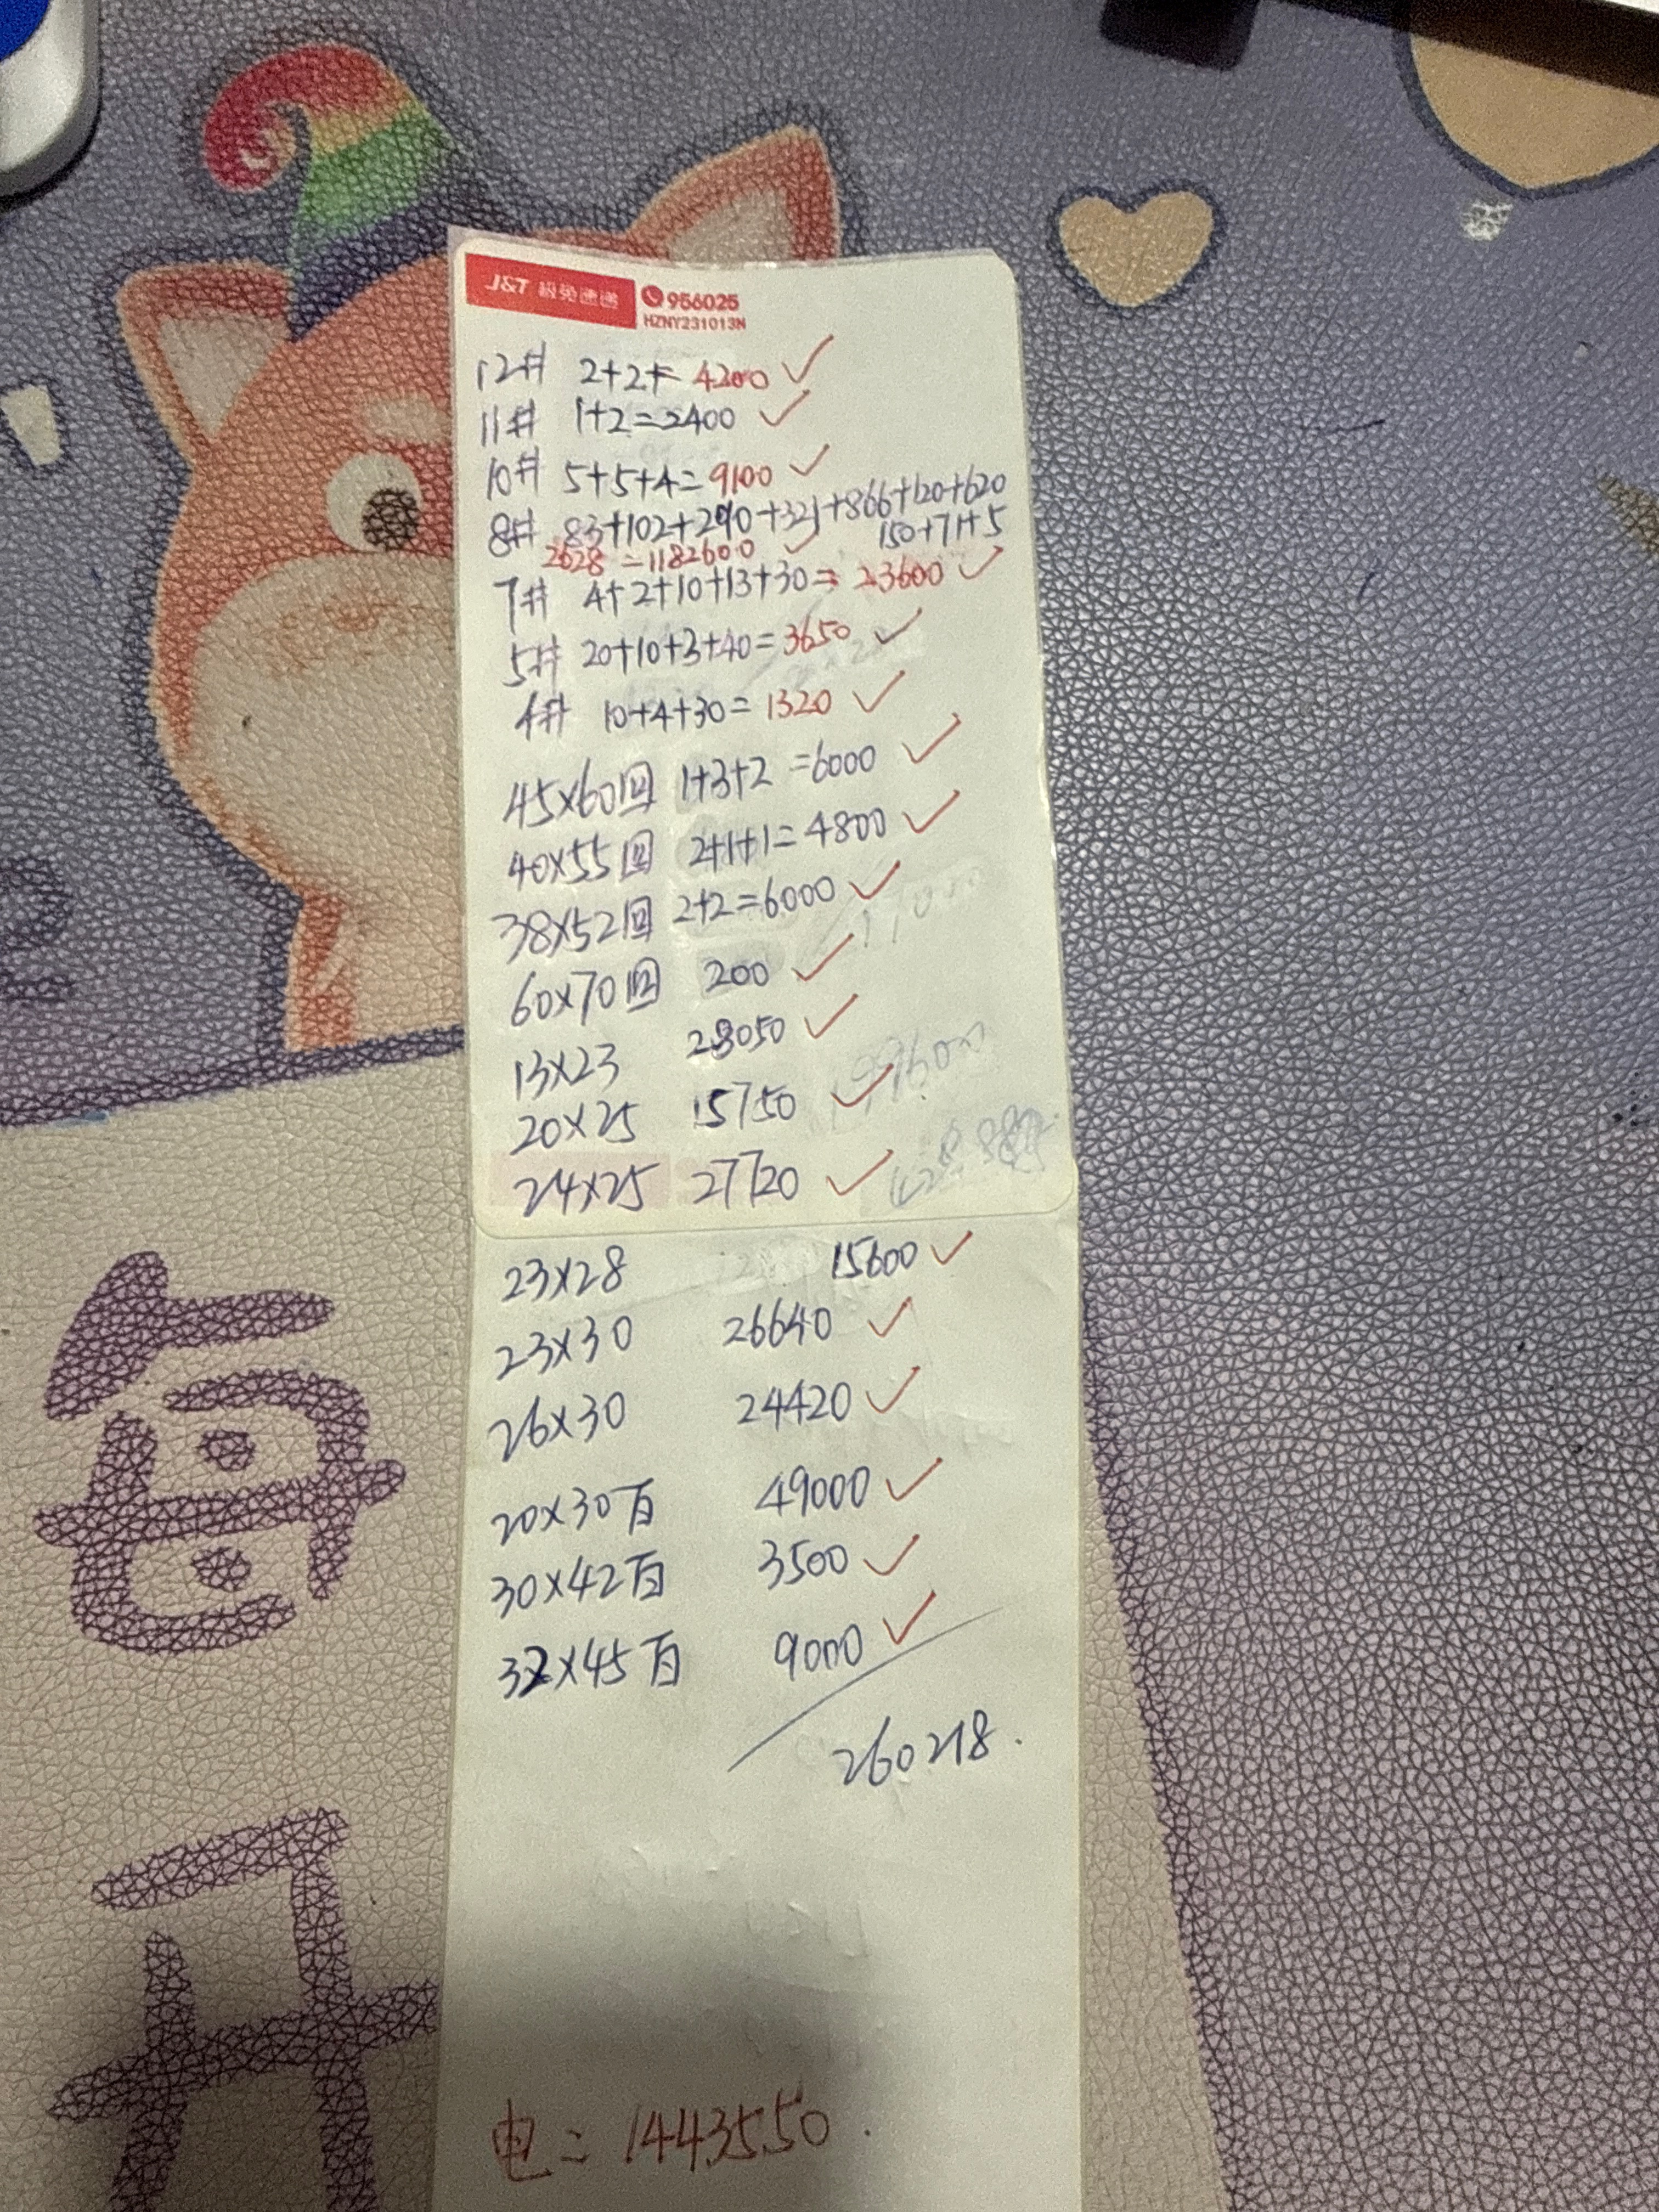 J&T 极兔速递 956025
HZNY231013N
12# 2+2+= 4200 ✓
11# 1+2=2400 ✓
10# 5+5+4=9100 ✓
8# 83+102+290+321+866+120+620
150+71+5
2628 =1182600 ✓
7# 4+2+10+13+30= 23600 ✓
5# 20+10+3+40=3650 ✓
4# 10+4+30=1320 ✓
45×60回 1+3+2 =6000 ✓
40×55回 2+1+1=4800 ✓
38×52回 2+2=6000 ✓
60×70回 200 ✓
13×23 28050 ✓
20×25 15750 ✓
24×25 27720 ✓
23×28 15600 ✓
23×30 26640 ✓
26×30 24420 ✓
20×30百 49000 ✓
30×42百 3500 ✓
32×45百 9000 ✓
260218.
电=1443550.